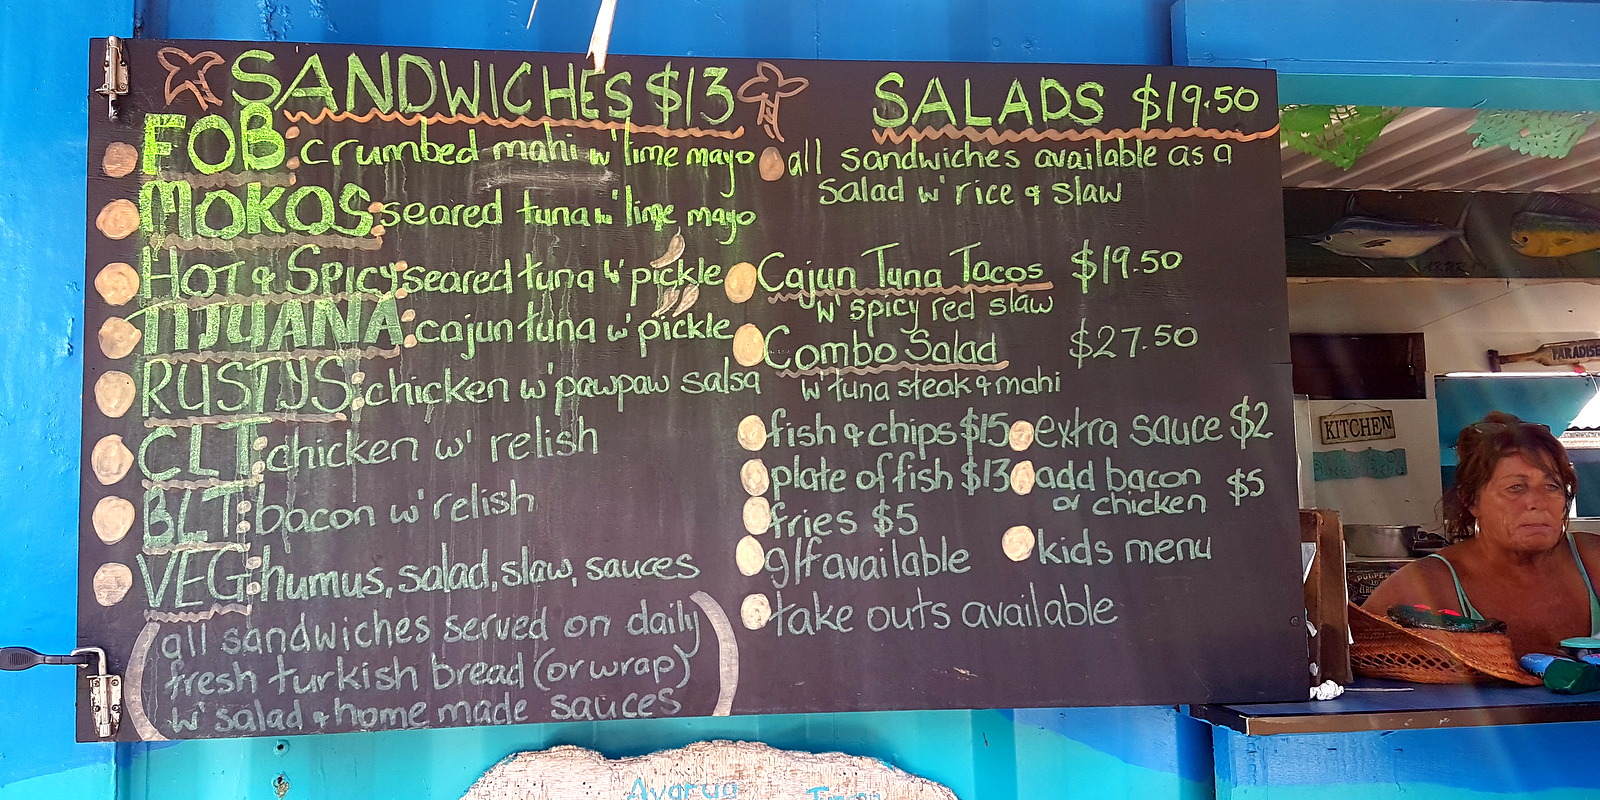 SANDWICHES $13
FOB: crumbed mahi w' lime mayo
MOKOS: seared tuna w' lime mayo
HOT & SPICY: seared tuna w' pickle
TIJUANA: cajun tuna w' pickle
RUSTYS: chicken w' pawpaw salsa
CLT: chicken w' relish
BLT: bacon w' relish
VEG: humus, salad, slaw, sauces
(all sandwiches served on daily
fresh turkish bread (or wrap)
w' salad & home made sauces)
SALADS $19.50
all sandwiches available as a
salad w' rice & slaw
Cajun Tuna Tacos $19.50
w' spicy red slaw
Combo Salad $27.50
w' tuna steak & mahi
fish & chips $15
plate of fish $13
fries $5
g/f available
take outs available
extra sauce $2
add bacon
or chicken $5
kids menu
PARADISE
KITCHEN
Avarua